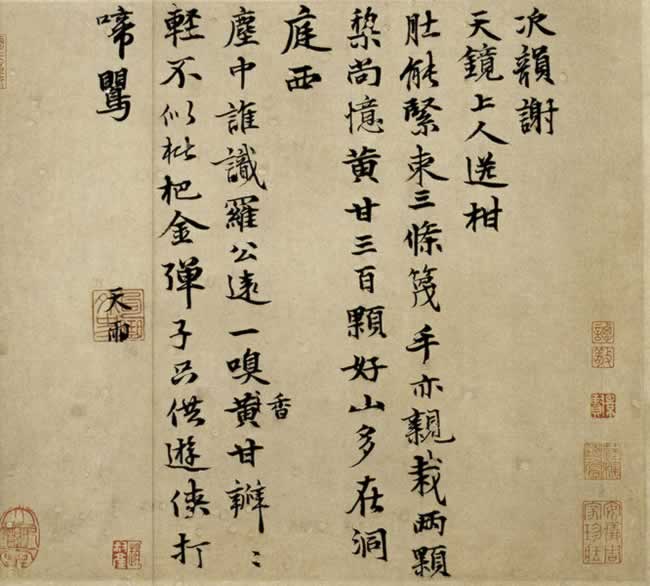 次韻謝
天鏡上人送柑
肚能緊束三條篾手亦親栽兩顆
棃尚憶黃甘三百顆好山多在洞
庭西
塵中誰識羅公遠一嗅黃甘辧〻
香
軽不似枇杷金彈子只供遊俠打
啼鸎
天雨